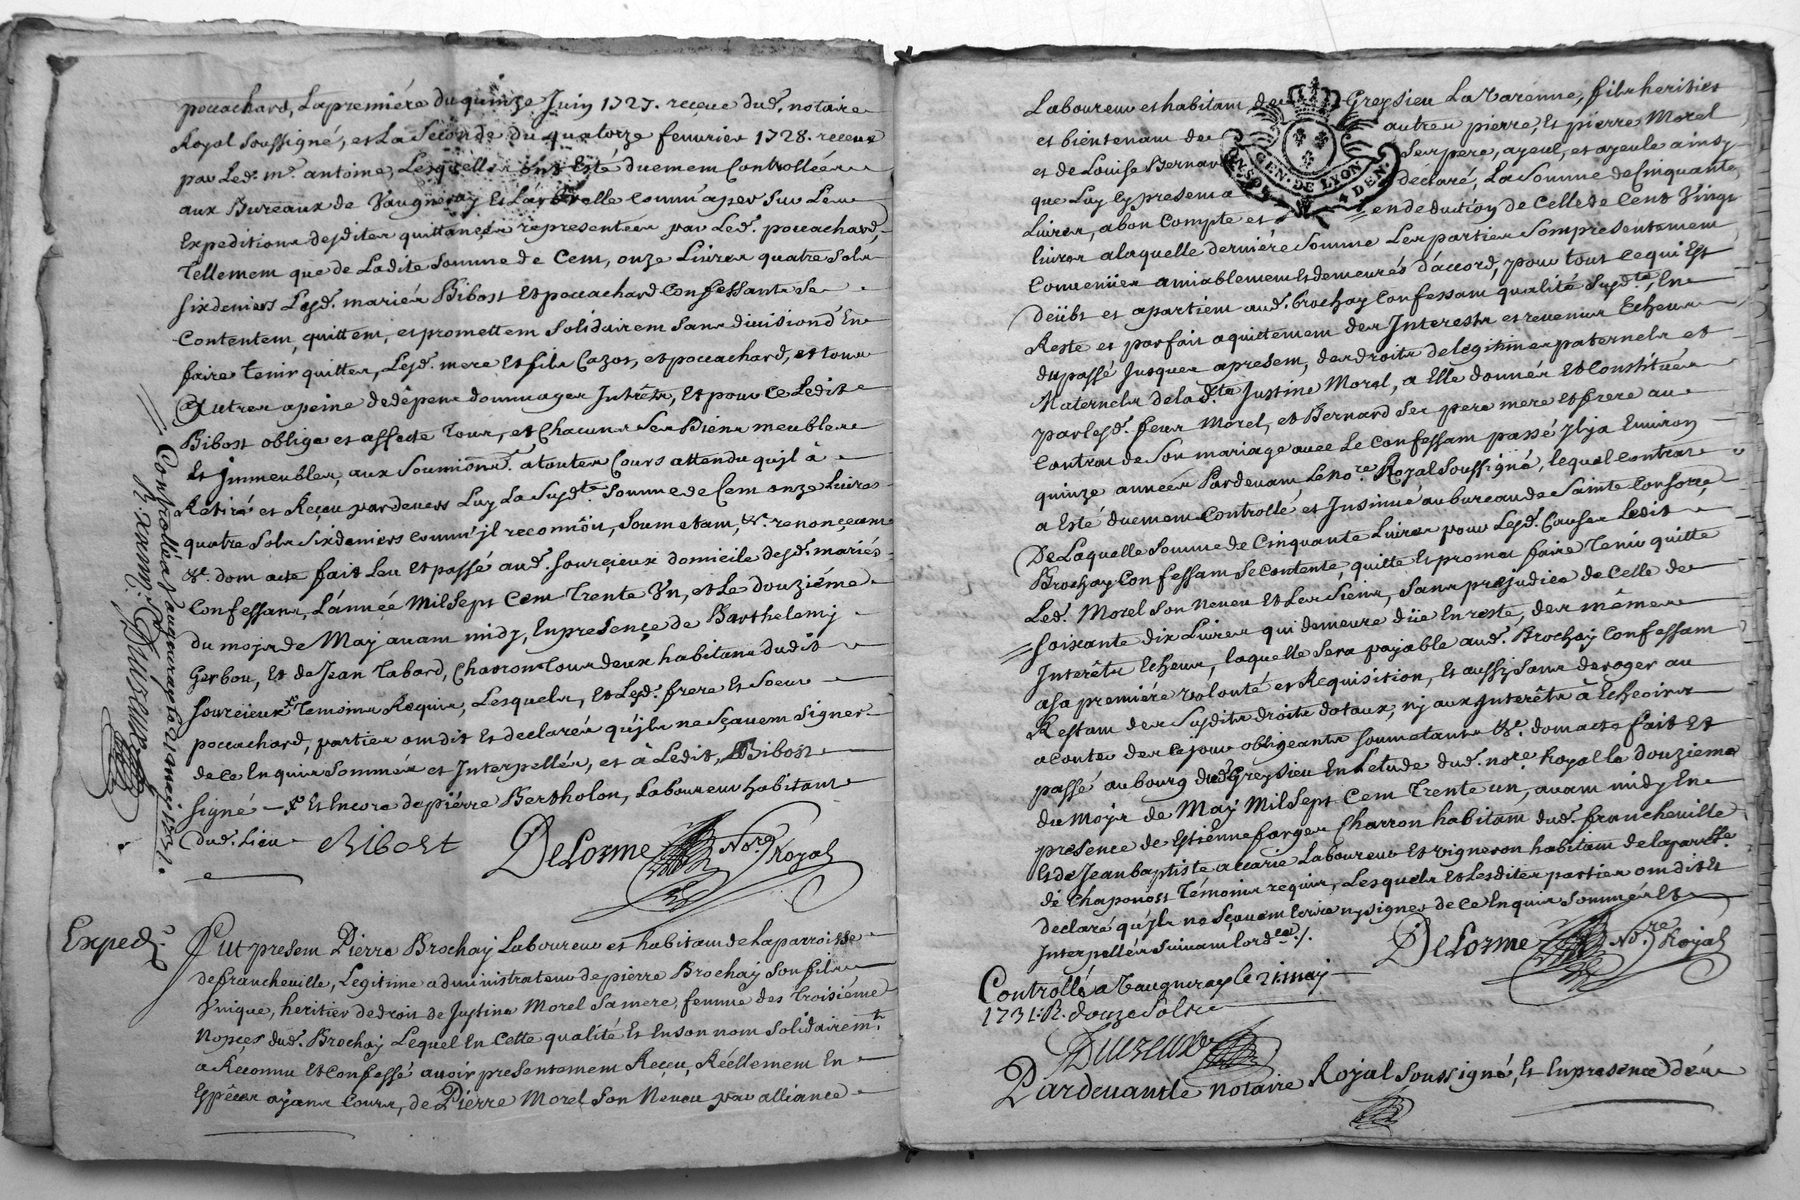 pouachard, La premiére du quinze Juin 1727. reçeue dud. notaire
Royal soussigné, et La Seconde du quatorze feuurier 1728. receue
par Led. me. antoine, Lesquelles ont Esté duement Controllées
aux Bureaux de Vaugneray Et comm'apert sur Les
Expeditions desdites quittances representées par Led. pouachard,
Tellement que de Ladite somme de Cent, onze Liures quatre sols
six deniers Lesd. mariés Bibost et pouachard Confessants se
Contentent, quittent, et promettent solidairement sans diuision d'En
faire tenir quittes, Lesd. mere Et fils Cazot, et pouachard, et tous
Autres a peine de dêpens dommages Intrêts, Et pour ce Ledit
Bibost oblige et affecte Tous, et Chacuns ses Biens meubles
Et Jmmeubles, aux soumions. a toutes Cours attendu qu'jl à
Retiré et Reçeu pardeuers Luy La susdte. somme de Cent onze Liures
quatre sols six deniers comm'jl reconnoit, soumetant, &c. renonceant
&c. dont acte fait Leu Et passé aud. sourcieux domicile desd. mariés
Confessants, L'année Mil sept Cent Trente Vn, et Le douziéme
du mojs de Maj auant midy, En presençe de Barthelemj
Gerbou, Et de Jean Tabard, Charron Tous deux habitans dudit
sourcieux Temoins Requis, Lesquels, Et Lesd. frere Et soeur
pouachard, parties ont dit Et declarés qu'jls ne sçauent signer
de ce Enquis sommés et Interpellés, et à Ledit Bibost
signé — Et Encore de piérre Bertholon, Laboureur habitant
dud. Lieu
Bibost DeLorme Nore. Royal
Controllé a Vaugneray Le 21 maj 1731.
Expedé.
Fut present Pierre Brochaj Laboureur et habitant de La parroisse
de francheuille, Legitime administrateur de pierre Brochaj son fils
Vnique, heritier de droit de Justine Morel sa mere, femme des Troisieme
Nopçes dud. Brochaj Lequel En cette qualité Et En son nom solidairemt.
a Reconnu Et confessé auoir presentement Reçeu, Réellement En
Espêces ajans Cours, de Pierre Morel son Neueu par alliance
Laboureur et habitant de Greysieu La Varenne, fils heritier
et bientenant de autres pierre, Et pierre Morel
et de Louise Bernard Ses pere, ayeul, et ayeule ainsy
que Luy Cy present a declaré, La somme de Cinquante
Liures, a bon Compte et en deduction de Celle de Cent Vingt
liures a laquelle derniére somme Les parties sont presentement
Conuenues amiablement et demeurés d'accord, pour tout ce qui Est
deübt et apartient aud. brochay Confessant qualité susdte, En
Reste et parfait aquittement des Interests et reuenus Echeus
du passé Jusques apresent, des droits de legitimes paternels et
Maternels de ladte Justine Morel, a Elle donnés Et Constitués
par lesd. feus Morel, et Bernard ses pere mere et frere au
Contrat de son mariage auec Le Confessant passé Jl ja Enuiron
quinze années Pardeuant Le nore. Royal soussigné, lequel contrat
a Esté duement Controllé et Insinué au bureau de Sainte Consorce
De Laquelle somme de Cinquante Liures pour Lesd. Causes Ledit
Brochay Confessant se contente, quitte Et promet faire Tenir quitte
Led. Morel son Neueu Et Les siens, sans prejudice de Celle de
soixante dix Liures qui demeure düe En reste, des mêmes
Interêts Echeus, laquelle sera payable aud. Brochay Confessant
a sa premiére volonté et Requisition, Et aussy sans deroger au
Restant des susdits droits dotaux, nj aux Interêts à Echeoir
a conter de ce jour obligeants soumetants &c. dont acte fait Et
passé au bourg dud. Greysieu En Letude dud. nore. Royal Le douzieme
du Mojs de Maj Mil sept Cent Trente un, auant midy En
presence de Estienne farges Charron habitant dud. francheuille
Et de Jean baptiste accarie Laboureur Et vigneron habitant de la parrsse.
de Chaponost Témoins requis, Lesquels Et Lesdites parties ont dit Et
declaré qu'jls ne sçauent Ecrire nj signer de ce Enquis sommés Et
Interpellés suiuant Lordce. /.
DeLorme Nore. Royal
Controllé a Vaugneray le 21. maj
1731. R. douze sols
Pardeuant Le notaire Royal soussigné, Et En presence des
GEN. DE LYON